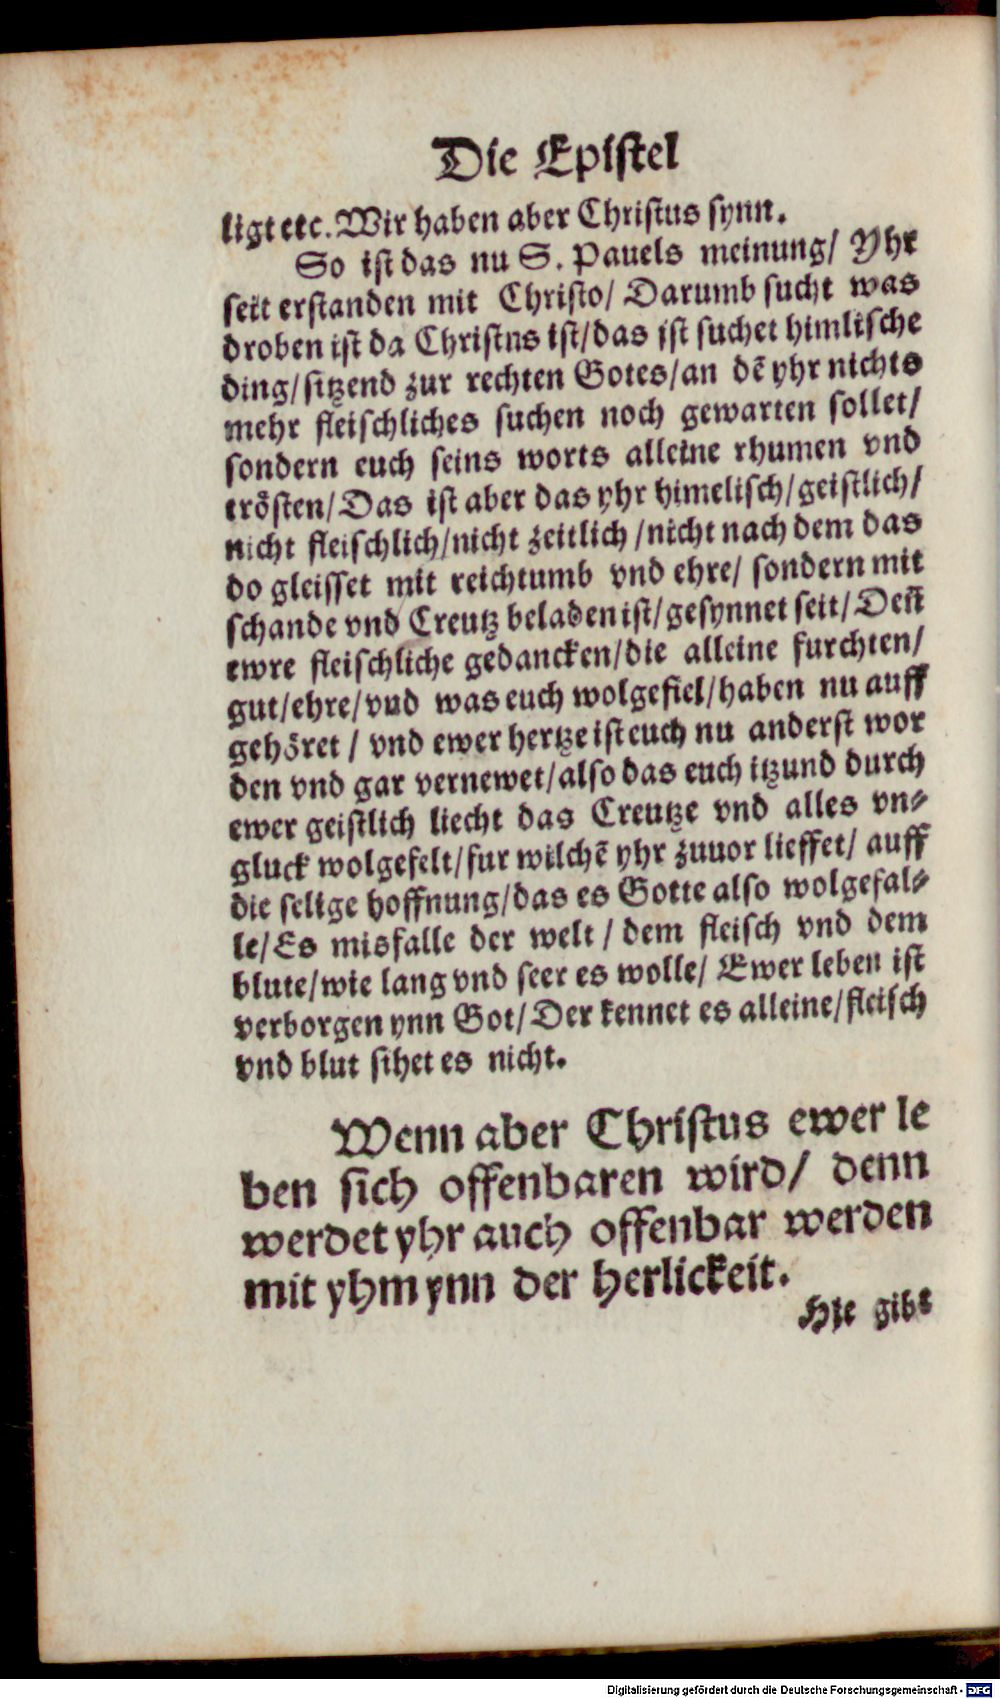 Die Epistel
ligt etc. Wir haben aber Christus synn.
So ist das nu S. Pauels meinung/ Yhr
seit erstanden mit Christo/ Darumb sucht was
droben ist da Christus ist/das ist suchet himlische
ding/sitzend zur rechten Gotes/an dẽ yhr nichts
mehr fleischliches suchen noch gewarten sollet/
sondern euch seins worts alleine rhumen vnd
trösten/Das ist aber das yhr himelisch/geistlich/
nicht fleischlich/nicht zeitlich/nicht nach dem das
do gleisset mit reichtumb vnd ehre/ sondern mit
schande vnd Creutz beladen ist/gesynnet seit/Deñ
ewre fleischliche gedancken/die alleine furchten/
gut/ehre/vnd was euch wolgefiel/haben nu auff
gehöret / vnd ewer hertze ist euch nu anderst wor
den vnd gar vernewet/also das euch itzund durch
ewer geistlich liecht das Creutze vnd alles vn⸗
gluck wolgefelt/fur wilchẽ yhr zuuor lieffet/ auff
die selige hoffnung/das es Gotte also wolgefal⸗
le/Es misfalle der welt / dem fleisch vnd dem
blute/wie lang vnd seer es wolle/ Ewer leben ist
verborgen ynn Got/Der kennet es alleine/fleisch
vnd blut sihet es nicht.
Wenn aber Christus ewer le
ben sich offenbaren wird/ denn
werdet yhr auch offenbar werden
mit yhm ynn der herlickeit.
Hie gibt
Digitalisierung gefördert durch die Deutsche Forschungsgemeinschaft - DFG